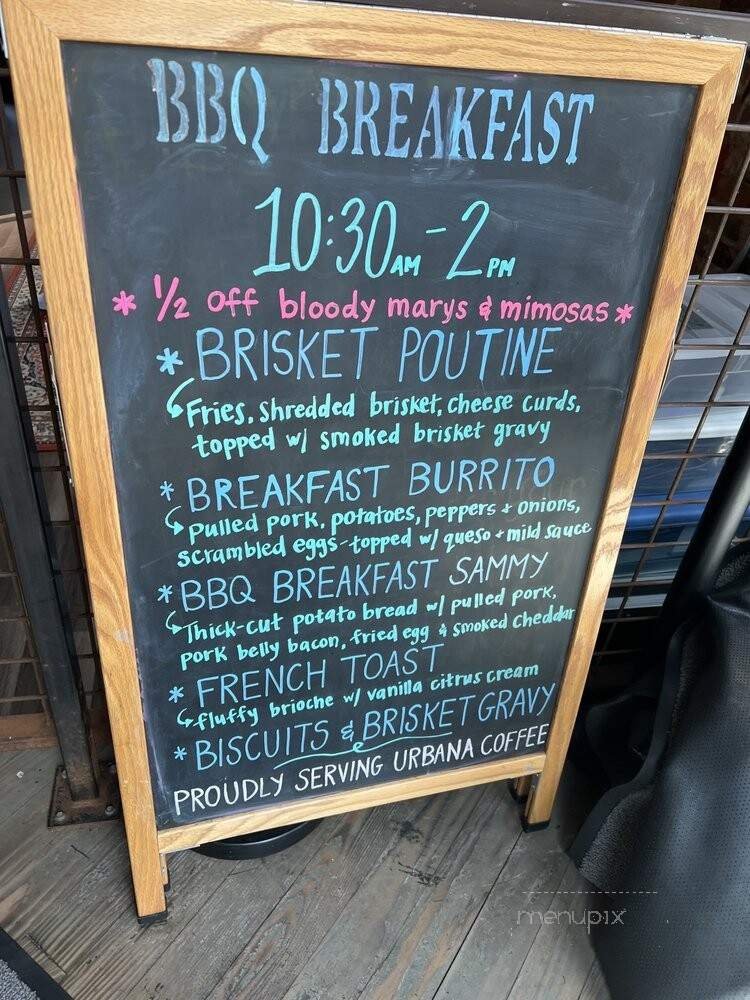 BBQ BREAKFAST
10:30AM - 2PM
* 1/2 off bloody marys & mimosas *
* BRISKET POUTINE
Fries, shredded brisket, cheese curds,
topped w/ smoked brisket gravy
* BREAKFAST BURRITO
pulled pork, potatoes, peppers + onions,
scrambled eggs - topped w/ queso + mild sauce
* BBQ BREAKFAST SAMMY
Thick-cut potato bread w/ pulled pork,
pork belly bacon, fried egg & smoked cheddar
* FRENCH TOAST
fluffy brioche w/ vanilla citrus cream
* BISCUITS & BRISKET GRAVY
PROUDLY SERVING URBANA COFFEE
menupix